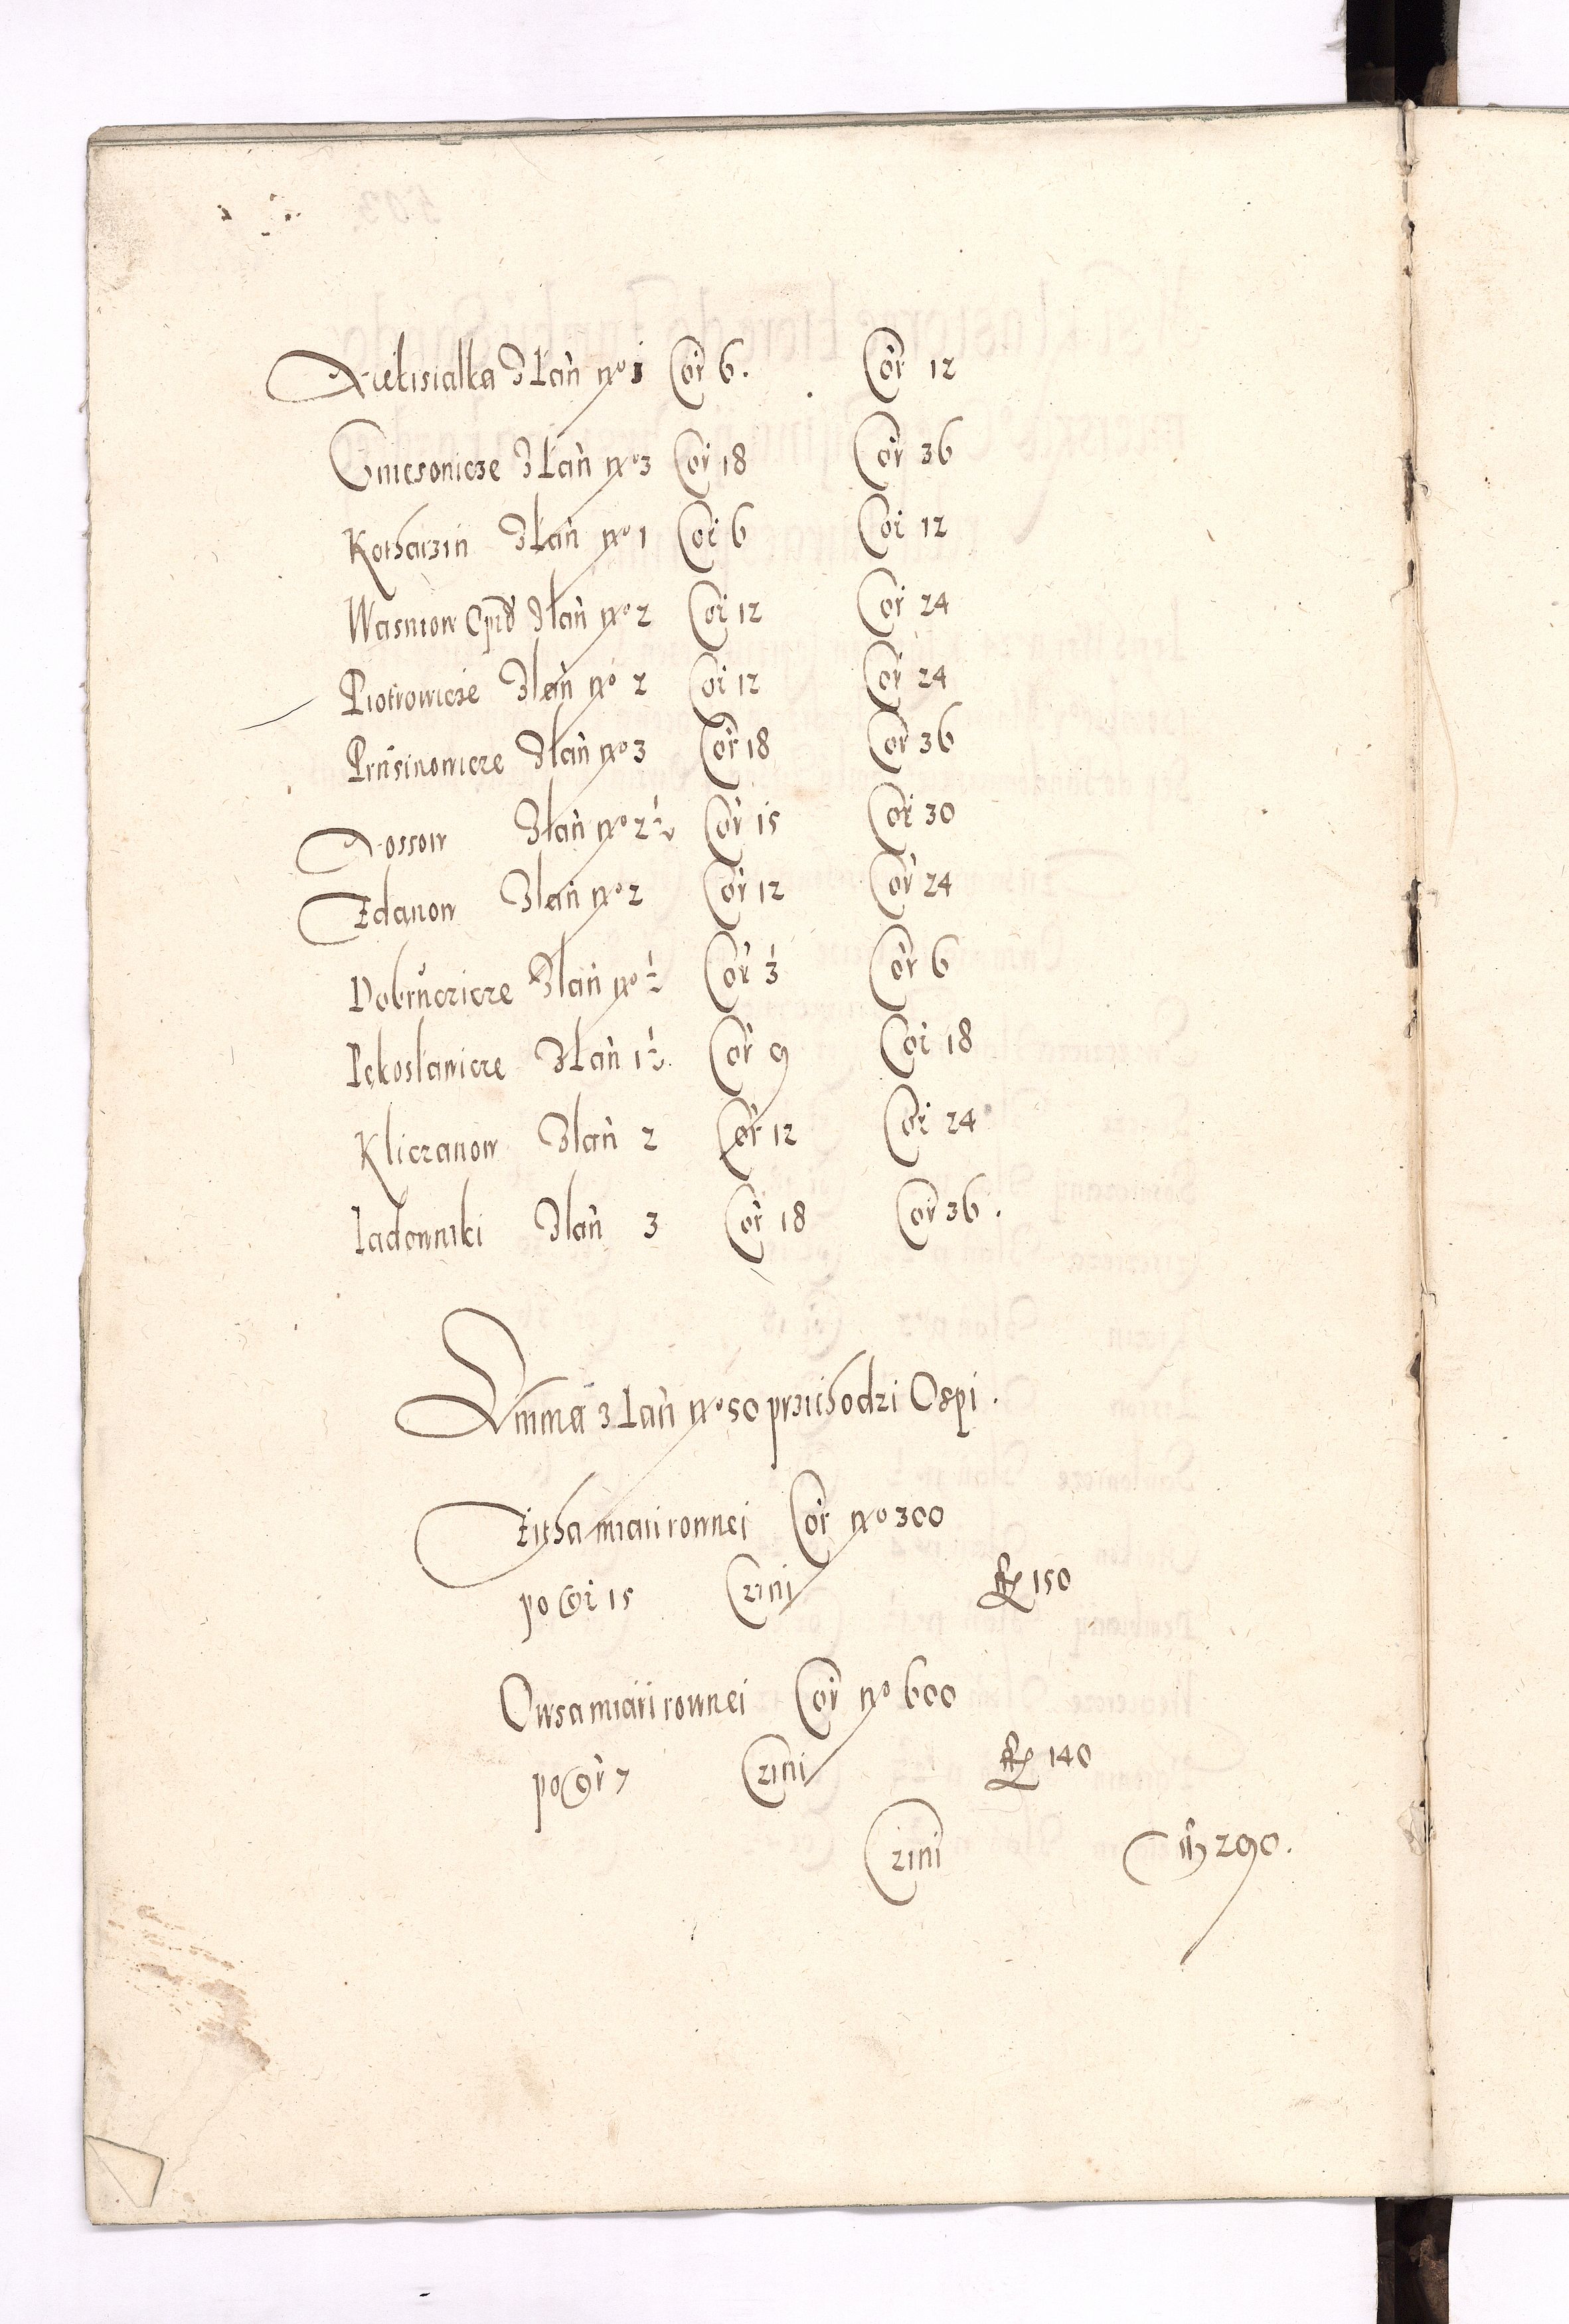 Wielisialka z łan̄ nro 1 Cor̄ 6. Cor̄ 12
Gniesovicze z łan̄ nro 3 Cor̄ 18 Cor̄ 36
Kotharzin z łan̄ nro 1 Cor̄ 6 Cor̄ 12
Wasniow Opid z łan̄ nro 2 Cor̄ 12 Cor̄ 24
Piotrowicze z łan̄ nro 2 Cor̄ 12 Cor̄ 24
Prusinowicze z łan̄ nro 3 Cor̄ 18 Cor̄ 36
Rossow z łan̄ nro 2½ Cor̄ 15 Cor̄ 30
Zdanow z łan̄ nro 2 Cor̄ 12 Cor̄ 24
Dobruczicze z łan̄ nro ½ Cor̄ 3 Cor̄ 6
Pękosławicze z łan̄ 1½ Cor̄ 9 Cor̄ 18
Kliczanow z łan̄ 2 Cor̄ 12 Cor̄ 24
Jadowniki z łan̄ 3 Cor̄ 18 Cor̄ 36.
Summa z łan̄ nro 50 przichodzi Ospi.
Zitha miari rownei Cor̄ nro 300
po gr̄ 15 Czini fl 150
Owsa miari rownei Cor̄ nro 600
po gr̄ 7 Czini fl 140
Czini fl 290.